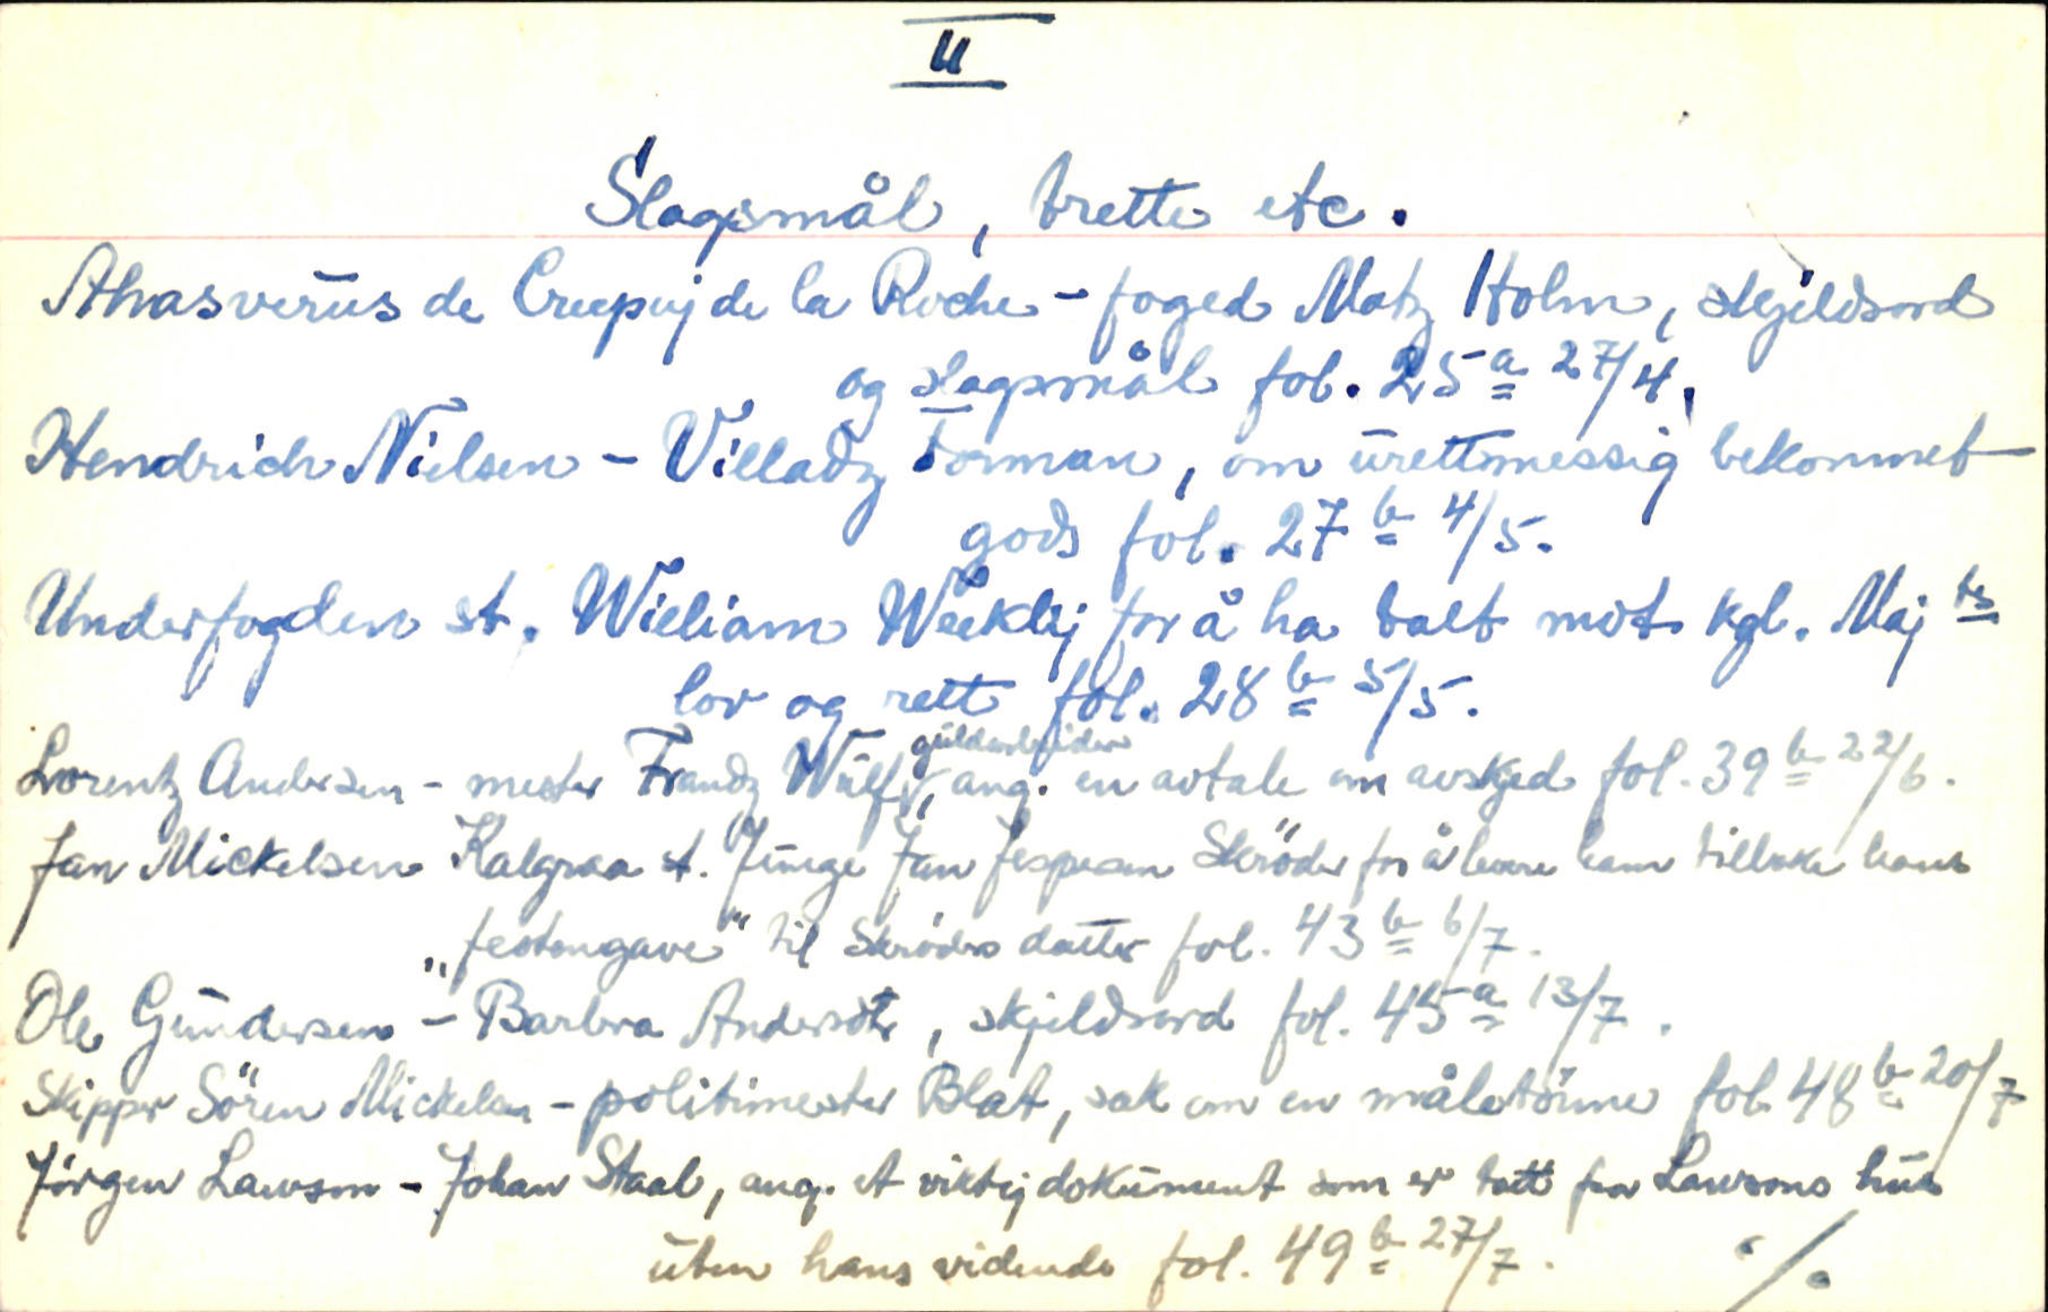 II
Slagsmål, trette etc.
Ahasverus de Creepuj de la Roche - foged Matz Holm, skjeldsord
og slagsmål fol. 25a 27/4.
Hendrich Nielsen - Villadz Torman, om urettmessig bekommet
gods fol. 27b 4/5.
Underfogden st. William Weeklej for å ha talt mot kgl. Maj ts
lov og rett fol. 28b 5/5.
guldarbeider
Lorentz Andersen - mester Frandz Wulf, ang. en avtale om avskjed fol. 39b 22/6.
Jan Mickelsen Kalgraa st. Junge Jan Jespersen Skrøder for å levere ham tilbake hans
„festengave" til Skrøders datter fol. 43b 6/7.
Ole Gundersen - Barbra Andersdtr, skjeldsord fol. 45a 13/7.
Skipper Sören Mickelsen - politimester Blat, sak om en måletönne fol 48b 20/7
Jörgen Lawson - Johan Staal, ang. et viktig dokument som er tatt fra Lawsons hus
uten hans vidende fol. 49b 27/7.
./.